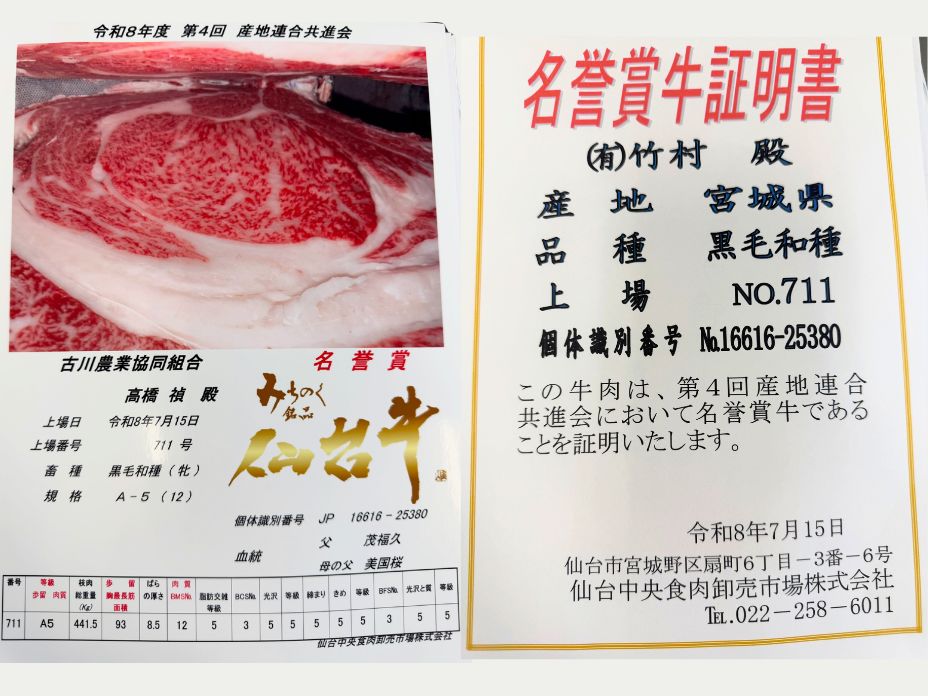 令和8年度 第4回 産地連合共進会
古川農業協同組合
名誉賞
高橋 禎 殿
上場日 令和8年7月15日
上場番号 711 号
畜種 黒毛和種（牝）
規格 A－5（12）
みちのく
銘品
仙台牛
個体識別番号 JP 16616－25380
血統 父 茂福久
母の父 美国桜
番号 等級 枝肉総重量(Kg) 歩留 胸最長筋面積 ばらの厚さ 肉質 BMSNo. 脂肪交雑等級 BCSNo. 光沢 等級 締まり きめ 等級 BFSNo. 光沢と質 等級
歩留 肉質
711 A5 441.5 93 8.5 12 5 3 5 5 5 5 5 3 5 5
仙台中央食肉卸売市場株式会社
名誉賞牛証明書
(有)竹村 殿
産地 宮城県
品種 黒毛和種
上場 NO.711
個体識別番号 №16616-25380
この牛肉は、第4回産地連合
共進会において名誉賞牛である
ことを証明いたします。
令和8年7月15日
仙台市宮城野区扇町6丁目－3番－6号
仙台中央食肉卸売市場株式会社
℡.022－258－6011